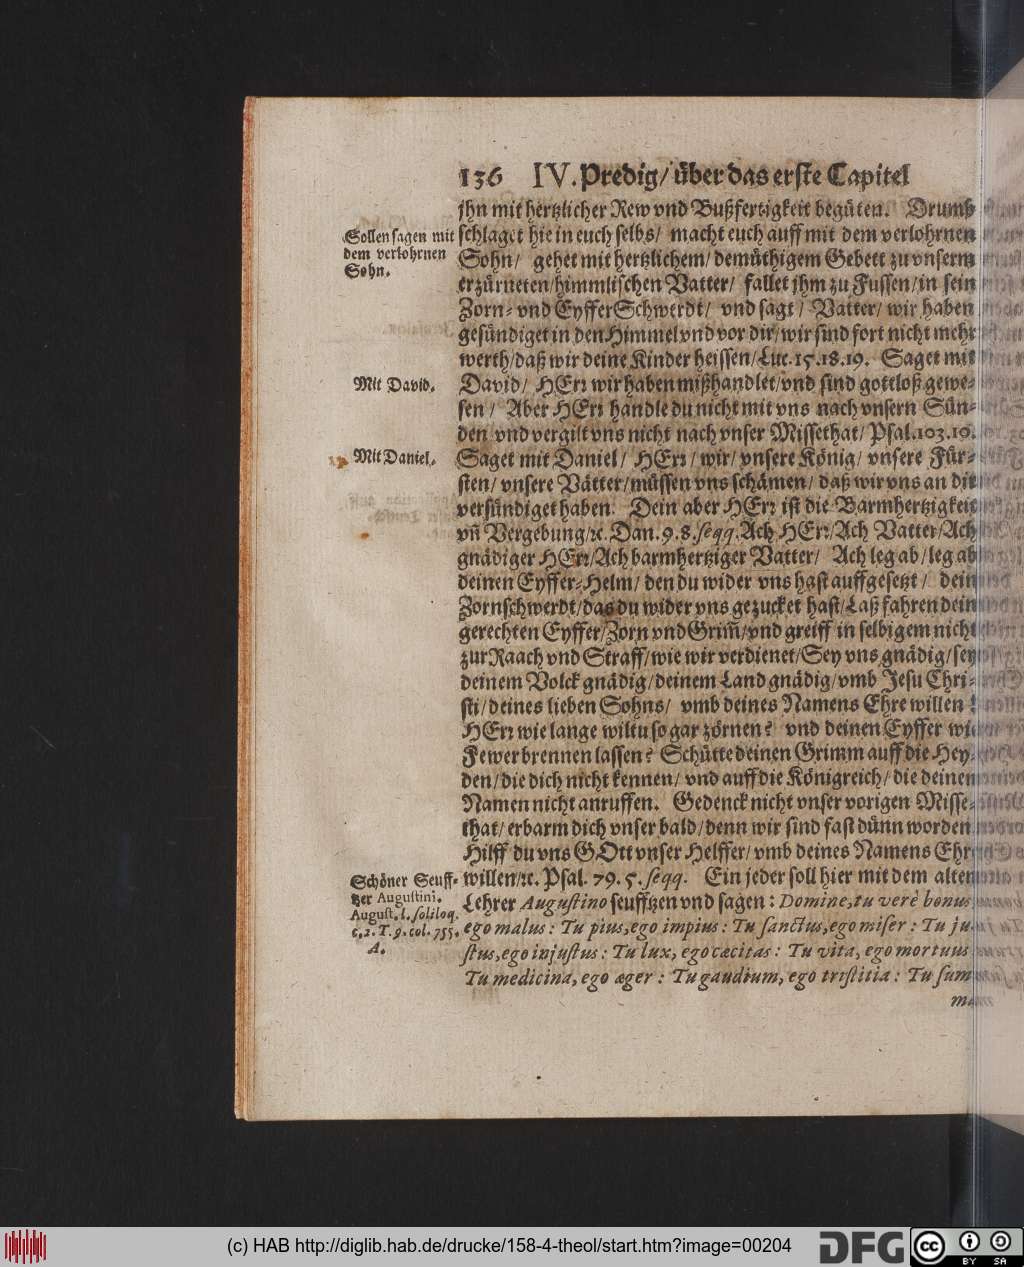 136 IV. Predig/ über das erste Capitel
jhn mit hertzlicher Rew vnd Bußfertigkeit begüten. Drumb
schlaget hie in euch selbs/ macht euch auff mit dem verlohrnen
Sohn/ gehet mit hertzlichem/ demüthigem Gebett zu vnserm
erzürneten/himmlischen Vatter/ fallet jhm zu Fussen/in sein
Zorn- vnd EyfferSchwerdt/ vnd sagt/ Vatter/ wir haben
gesündiget in den Himmel vnd vor dir/ wir sind fort nicht mehr
werth/daß wir deine Kinder heissen/Luc. 15. 18. 19. Saget mit
David/ HErꝛ wir haben mißhandlet/vnd sind gottloß gewe-
sen/ Aber HErꝛ handle du nicht mit vns nach vnsern Sün-
den vnd vergilt vns nicht nach vnser Missethat/ Psal. 103. 10.
Saget mit Daniel/ HErꝛ/ wir/ vnsere König/ vnsere Für-
sten/ vnsere Vätter/müssen vns schämen/ daß wir vns an dir
versündiget haben. Dein aber HErꝛ ist die Barmhertzigkeit
vñ Vergebung/ꝛc. Dan. 9. 8. seqq. Ach HErꝛ/Ach Vatter/Ach
gnädiger HErꝛ/Ach barmhertziger Vatter/ Ach leg ab/leg ab
deinen Eyffer-Helm/ den du wider vns hast auffgesetzt/ dein
Zornschwerdt/das du wider vns gezucket hast/Laß fahren dein
gerechten Eyffer/Zorn vnd Grim̃/vnd greiff in selbigem nicht
zur Raach vnd Straff/wie wir verdienet/Sey vns gnädig/sey
deinem Volck gnädig/deinem Land gnädig/vmb Jesu Chri-
sti/deines lieben Sohns/ vmb deines Namens Ehre willen!
HErꝛ wie lange wiltu so gar zörnen? vnd deinen Eyffer wie
Fewer brennen lassen? Schütte deinen Grimm auff die Hey-
den/die dich nicht kennen/ vnd auff die Königreich/ die deinen
Namen nicht anruffen. Gedenck nicht vnser vorigen Misse-
that/erbarm dich vnser bald/denn wir sind fast dünn worden
Hilff du vns GOtt vnser Helffer/ vmb deines Namens Ehr
willen/ꝛc. Psal. 79. 5. seqq. Ein jeder soll hier mit dem alten
Lehrer Augustino seufftzen vnd sagen: Domine, tu verè bonus
ego malus: Tu pius, ego impius: Tu sanctus, ego miser: Tu ju-
stus, ego injustus: Tu lux, ego cæcitas: Tu vita, ego mortuus
Tu medicina, ego æger: Tu gaudium, ego tristitia: Tu sum
Sollen sagen mit
dem verlohrnen
Sohn.
Mit David.
Mit Daniel.
Schöner Seuff-
tzer Augustini.
August. l. soliloq.
c. 2. T. 9. col. 755.
A.
(c) HAB http://diglib.hab.de/drucke/158-4-theol/start.htm?image=00204
DFG
cc
BY SA